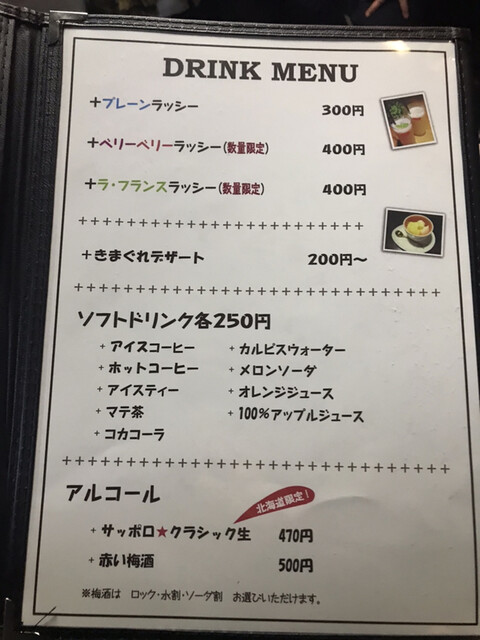 DRINK MENU
+プレーンラッシー 300円
+ベリーベリーラッシー(数量限定) 400円
+ラ・フランスラッシー(数量限定) 400円
++++++++++++++++++++++++
+きまぐれデザート 200円～
+++++++++++++++++++++++++++++
ソフトドリンク各250円
+アイスコーヒー +カルピスウォーター
+ホットコーヒー +メロンソーダ
+アイスティー +オレンジジュース
+マテ茶 +100%アップルジュース
+コカコーラ
++++++++++++++++++++++++++++++
アルコール
北海道限定!
+サッポロ★クラシック生 470円
+赤い梅酒 500円
※梅酒は ロック・水割・ソーダ割 お選びいただけます。